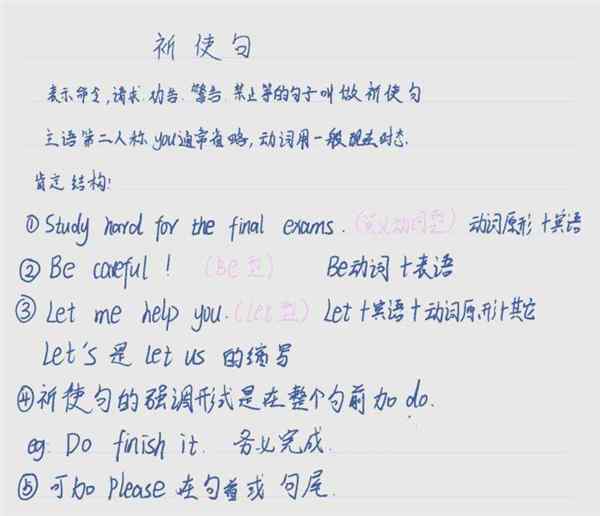 祈使句
表示命令,请求.劝告.警告.禁止等的句子叫做祈使句
主语第二人称you通常省略,动词用一般现在时态.
肯定结构:
① Study hard for the final exams. (实义动词型) 动词原形+宾语
② Be careful ! (Be型) Be动词+表语
③ Let me help you. (Let型) Let+宾语+动词原形+其它
Let's 是 Let us 的缩写
④祈使句的强调形式是在整个句前加 do.
eg. Do finish it. 务必完成.
⑤ 可加 Please 在句首或 句尾.